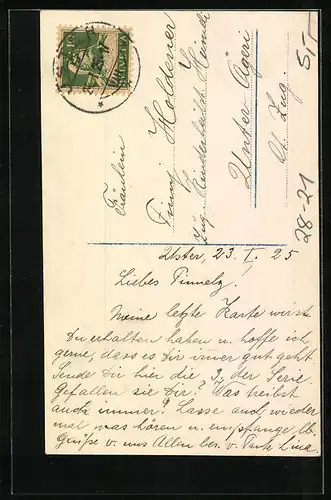 HELVETIA
Fräulein
Finny Holdener
Zug. Kinderheilst. Heimeli
Unter Ägeri
Ct. Zug.
28-21
Uster, 23. I. 25
Liebes Finnely.
Meine letzte Karte wirst
Du erhalten haben u. hoffe ich
gerne, dass es Dir immer gut geht
Sende Dir hier die 3. der Serie.
Gefallen sie Dir? Was treibst
auch immer? Lasse auch wieder
mal was hören u. empfange lb.
Grüße v. uns Allen bes. v. Lina.